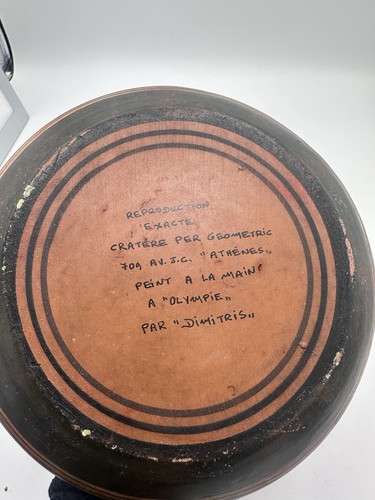 REPRODUCTION
EXACTE
CRATÈRE PER GEOMETRIC
709 AV. J.C. "ATHÉNES„
PEINT A LA MAIN
A "OLYMPIE„
PAR "DIMITRIS„